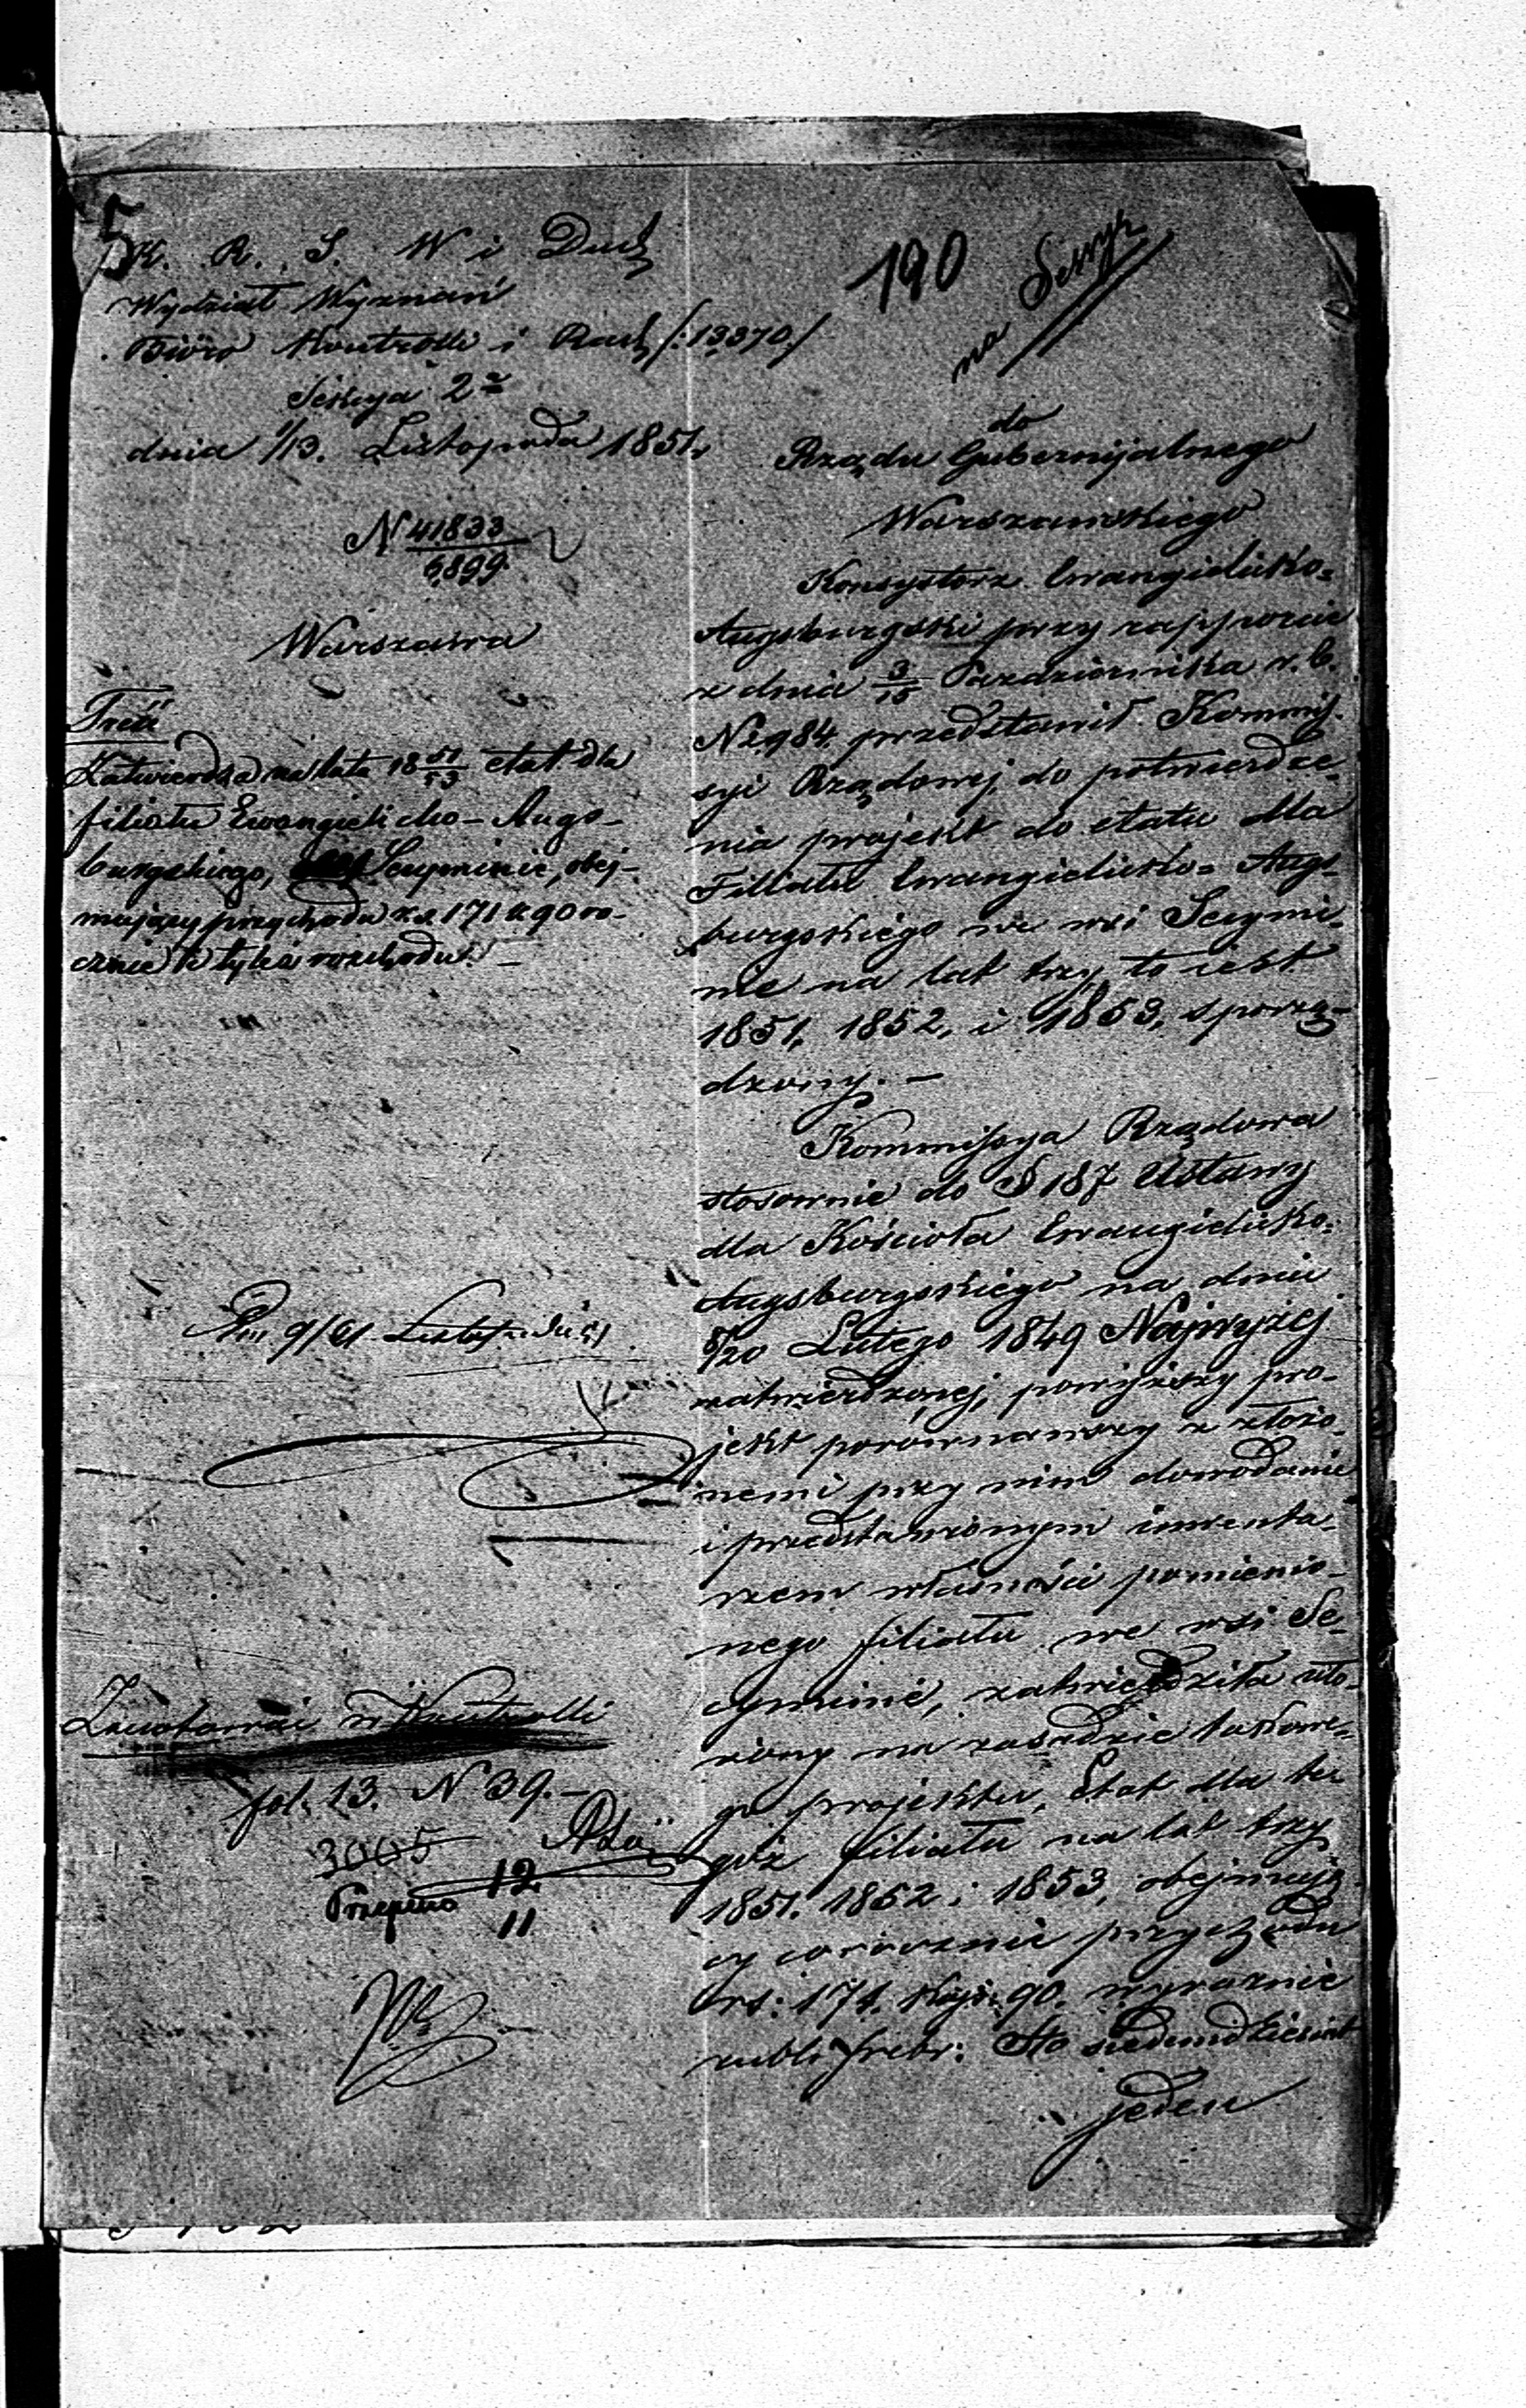 5
K. R. S. W i Duch
Wydział Wyznań
Biuro Kontrolli i Rach /:13370/
Sekcya 2ª
dnia 1/13. Listopada 1851.
N 41833
6899
Warszawa
Treść
Zatwierdza na lata 18 51/53 etat dla
filiału Ewangielicko-Augs-
burgskiego, Secyminie, obej-
mujący przychodu rs. 171 k. 90 ro-
cznie i tyleż rozchodu. –
fol. 13. N 39. –
3005
12
11
190
na Sessyę
do
Rządu Gubernijalnego
Warszawskiego
Konsystorz Ewangielicko=
Augsburgski przy rapporcie
z dnia 3/15 Października r. b.
N 2984. przedstawił Kommis-
syi Rządowej do potwierdze-
nia projekt do etatu dla
Filiału Ewangielicko= Augs-
burgskiego we wsi Secymi-
nie na lat trzy to iest
1851, 1852, i 1853, sporzą-
dzony. –
Kommissya Rządowa
stosownie do § 187 Ustawy
dla Kościoła Ewangielicko-
Augsburgskiego na dniu
8/20 Lutego 1849 Najwyżej
zatwierdzonej, powyższy pro-
jekt porównawszy z złożo-
nemi przy nim dowodami
i przedstawionym inwenta-
rzem własności pomienio-
nego filiału we wsi Se-
cyminie, zatwierdziła uło-
żony na zasadzie takowe-
go projektu, Etat dla te-
goż filiału na lat trzy
1851. 1852 i 1853, obejmują-
cy corocznie przychodu
rs: 171. kop: 90. wyraznie
rubli srebr: Sto siedmdziesiąt
jeden